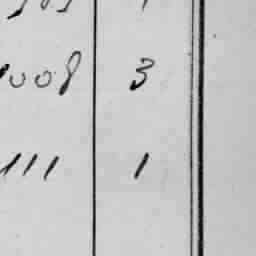 008 3
111 1